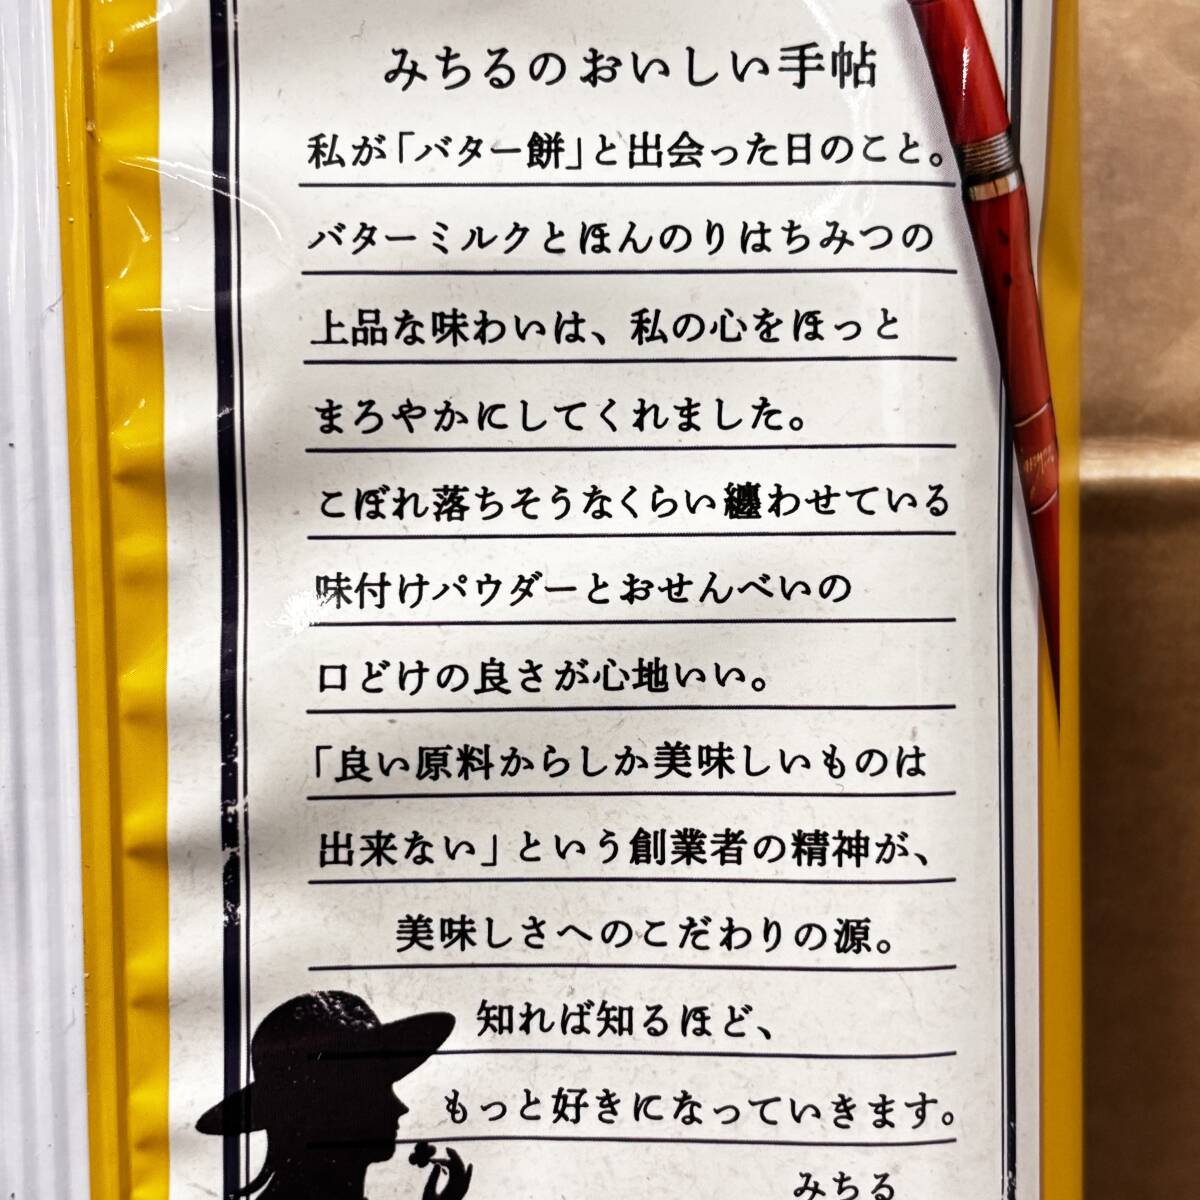 みちるのおいしい手帖
私が「バター餅」と出会った日のこと。
バターミルクとほんのりはちみつの
上品な味わいは、私の心をほっと
まろやかにしてくれました。
こぼれ落ちそうなくらい纏わせている
味付けパウダーとおせんべいの
口どけの良さが心地いい。
「良い原料からしか美味しいものは
出来ない」という創業者の精神が、
美味しさへのこだわりの源。
知れば知るほど、
もっと好きになっていきます。
みちる